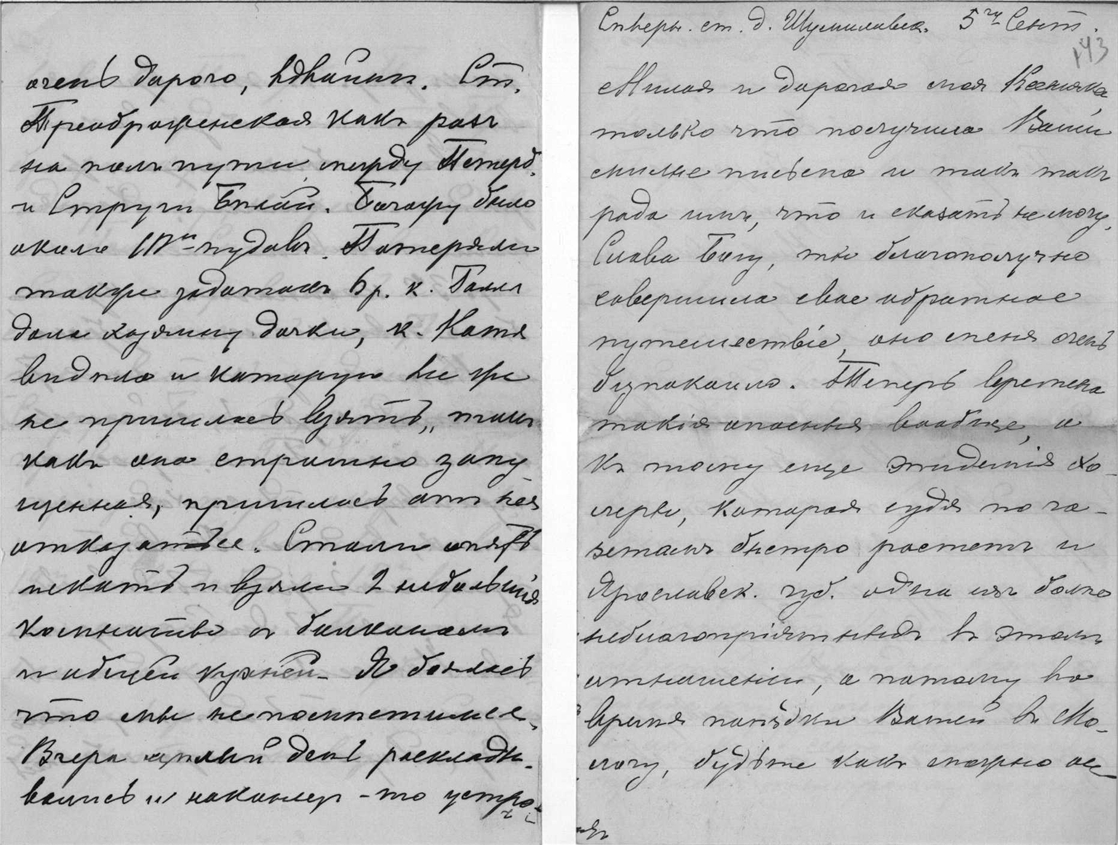 очень дорого, вдвоемъ. Ст.
Преображенская какъ разъ
на полъ пути между Петерб.
и Струги Бѣлой. Багажу было
около 10ти пудовъ. Потеряли
также задатокъ 6 р. к.
дала хозяину дачки, к. Катя
видѣла и которую все же
не пришлось взять, такъ
какъ она страшно запу
щенная, пришлось отъ нея
отказаться. Стали опять
искать и взяли 2 небольшія
комнатки съ балкономъ
и общей кухней. Я боялась
что мы не помѣстимся,
Вчера цѣлый день расклады-
вались и наконецъ-то устро-
Сиверск. ст. д. Шумиловка. 5го Сент.
143
Милая и дорогая моя
только что получила Ваши
милые письма и такъ такъ
рада имъ, что и сказать не могу,
Слава Богу, ты благополучно
совершила свое обратное
путешествіе, оно меня очень
безпокоило. Теперь времена
такія опасныя вообще, а
къ тому еще эпидемія хо-
леры, которая судя по га-
зетамъ быстро растетъ и
Ярославск. губ. одна изъ болѣе
неблагопріятныхъ въ этомъ
отношеніи, а потому во
время поѣздки Вашей въ Мо-
логу, будьте какъ можно ос-